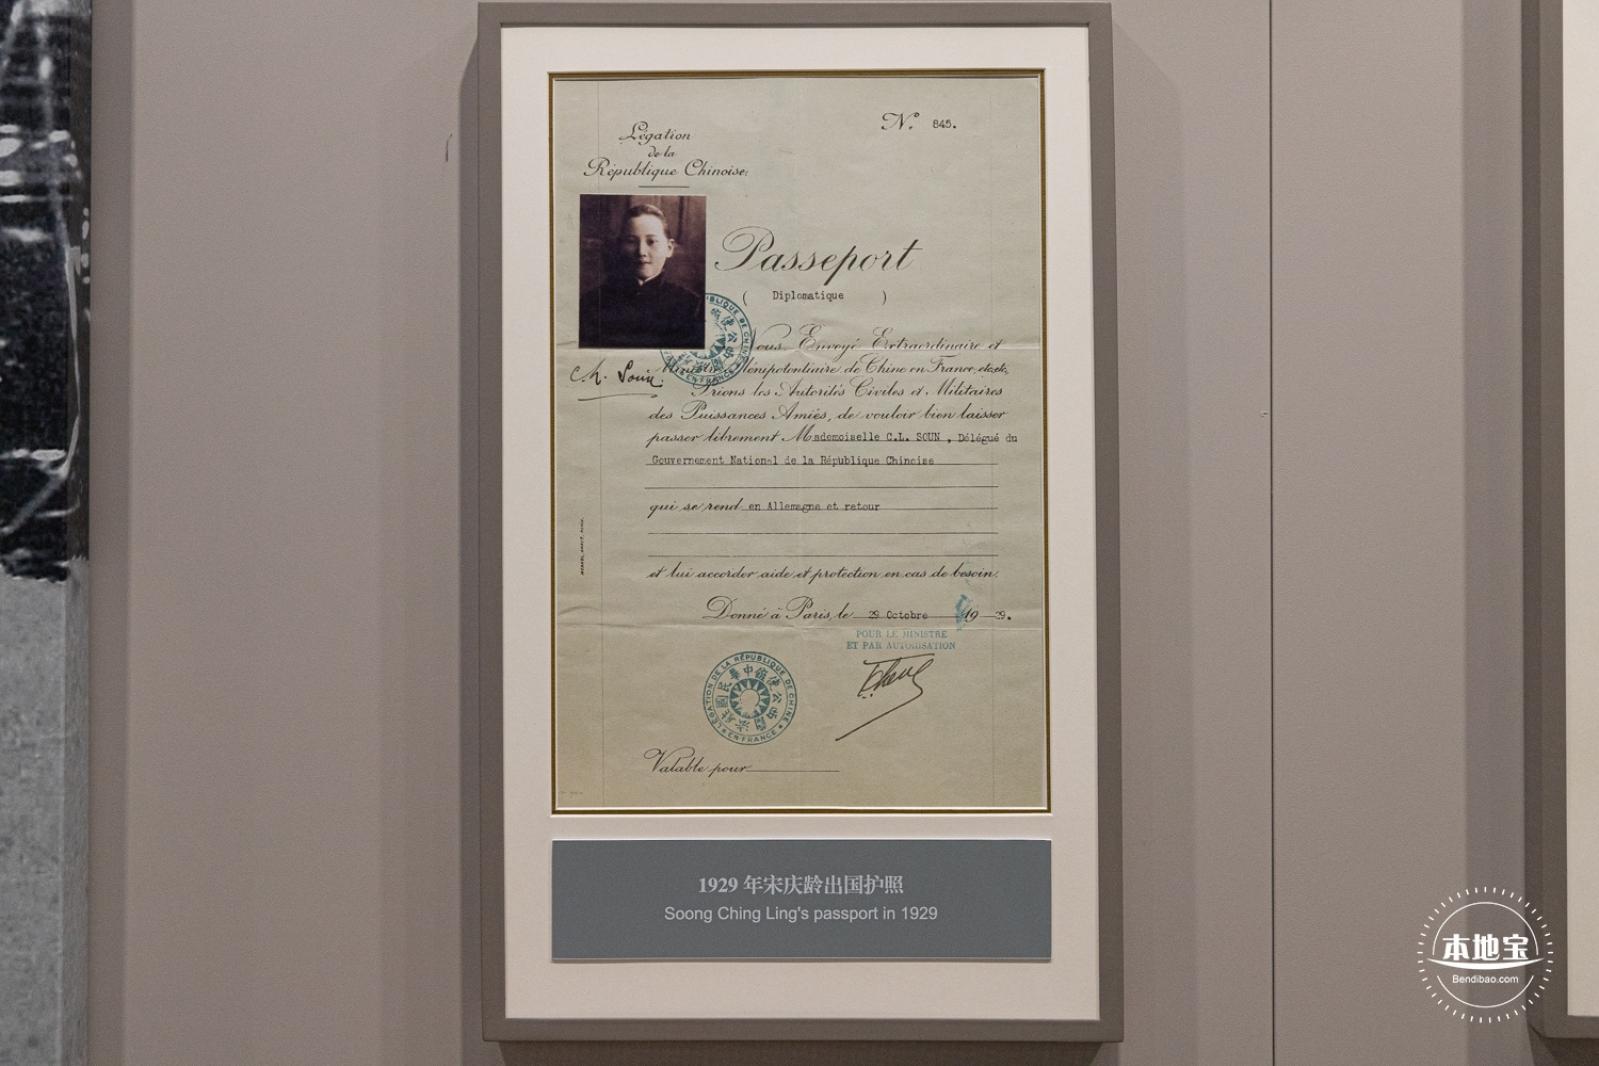 Légation
de la
République Chinoise
N° 845.
Passeport
( Diplomatique )
Nous Envoyé Extraordinaire et
Ministre Plénipotentiaire de Chine en France, etc. etc.
Prions les Autorités Civiles et Militaires
des Puissances Amies, de vouloir bien laisser
passer librement Mademoiselle C.L. SOUN , Délégué du
Gouvernement National de la République Chinoise
qui se rend en Allemagne et retour
et lui accorder aide et protection en cas de besoin.
Donné à Paris, le 29 Octobre 1929.
POUR LE MINISTRE
ET PAR AUTORISATION
LÉGATION DE LA RÉPUBLIQUE DE CHINE
EN FRANCE
Valable pour
1929 年宋庆龄出国护照
Soong Ching Ling's passport in 1929
本地宝
Bendibao.com